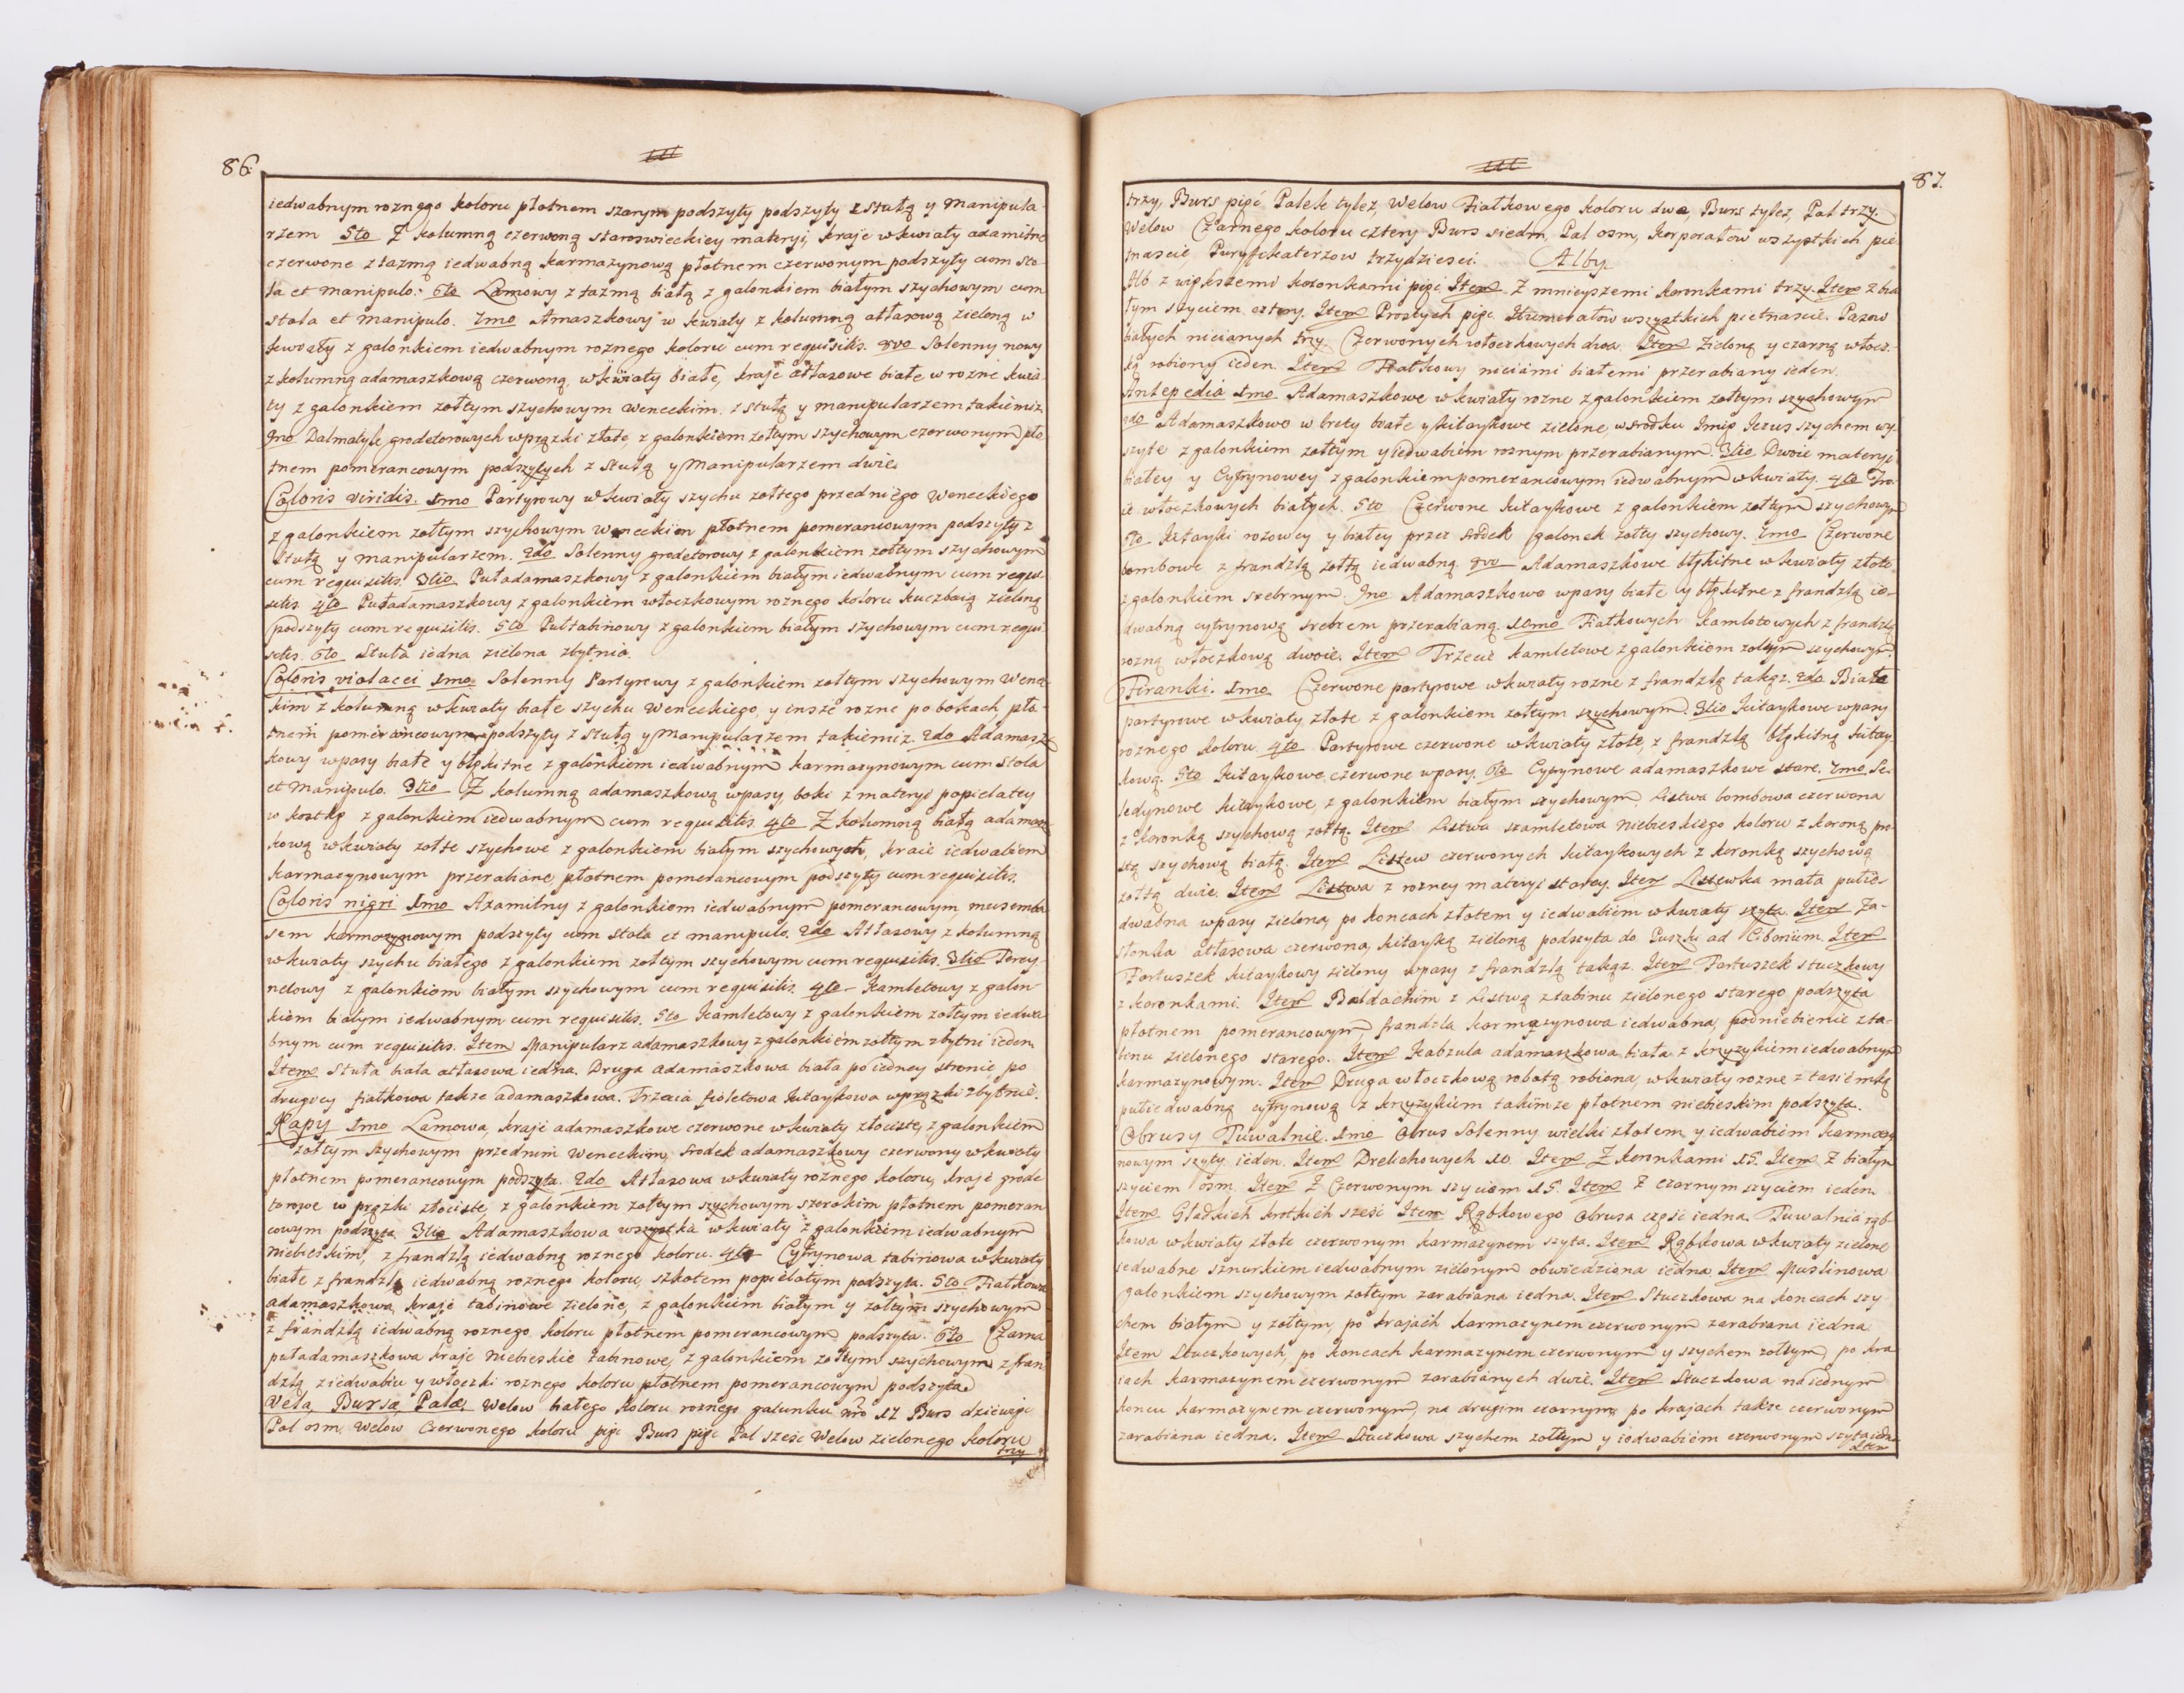 86.
iedwabnym roznego koloru płotnem szarym podszyty podszyty z stułą y manipula-
rzem 5to Z kolumną czerwoną staroswieckiey materyi, kraje w kwiaty axamitne
czerwone z tazmą iedwabną karmazynową płotnem czerwonym podszyty cum sto-
la et manipulo. 6to Lamowy z tazmą białą z galonkiem białym szychowym cum
stola et manipulo. 7mo Amaszkowy w kwiaty z kolumną atłasową zieloną w
kwiaty z galonkiem iedwabnym roznego koloru cum requisitis. 8vo Solenny nowy
z kolumną adamaszkową czerwoną, w kwiaty białe, kraje atłasowe białe w rozne kwia-
ty z galonkiem zołtym szychowym weneckim. z stułą y manipularzem takiemiz
9no Dalmatyk grodetorowych w prązki złote, z galonkiem zołtym szychowym czerwonym pło-
tnem pomerancowym podszytych z stułą y Manipularzem dwie.
Coloris viridis. 1mo Partyrowy w kwiaty szychu zołtego przedniego weneckiego
z galonkiem zołtym szychowym weneckim płotnem pomerancowym podszyty z
stułą y manipularzem. 2do Solenny grodetorowy z galonkiem zołtym szychowym
cum requisitis. 3tio Puładamaszkowy z galonkiem białym iedwabnym cum requi-
sitis 4to Puładamaszkowy z galonkiem włoczkowym roznego koloru kuczbaią zieloną
podszyty cum requisitis. 5to Pułtabinowy z galonkiem białym szychowym cum requi-
sitis. 6to Stuła iedna zielona zbytnia.
Coloris violacei 1mo Solenny Partyrowy z galonkiem zołtym szychowym wenec-
kim z kolumną w kwiaty białe szychu weneckiego, y insze rozne po bokach pło-
tnem pomerancowym podszyty z stułą y manipularzem takiemiz. 2do Adamasz-
kowy w pasy białe y błękitne z galonkiem iedwabnym karmazynowym cum stola
et Manipulo. 3tio Z kolumną adamaszkową w pasy boki z materyi popielatey
w kostkę z galonkiem iedwabnym cum requisitis. 4to Z kolumną białą adamasz-
kową w kwiaty zołte szychowe z galonkiem białym szychowych, kraie iedwabiem
karmazynowym przerabiane, płotnem pomerancowym podszyty cum requisitis.
Coloris nigri 1mo Axamitny z galonkiem iedwabnym pomerancowym, musemba-
sem karmazynowym podszyty cum stola et manipulo. 2do Atłasowy z kolumną
w kwiaty szychu białego z galonkiem zołtym szychowym cum requisitis. 3tio Tercy-
nelowy z galonkiem białym szychowym cum requisitis. 4to Kamletowy z galon-
kiem białym iedwabnym cum requisitis. 5to Kamletowy z galonkiem zołtym iedwa-
bnym cum requisitis. Item Manipularz adamaszkowy z galonkiem zołtym zbytni ieden.
Item Stuła biała atłasowa iedna. Druga adamaszkowa biała po iedney stronie po
drugiey fiałkowa takze adamaszkowa. Trzecia fioletowa kitaykowa w prązki zbytnie.
Kapy 1mo Lamowa, kraje adamaszkowe czerwone w kwiaty złociste, z galonkiem
zołtym szychowym przednim weneckim, srodek adamaszkowy czerwony w kwiaty
płotnem pomerancowym podszyta. 2do Atłasowa w kwiaty roznego koloru, kraje grode-
torowe w prązki złociste, z galonkiem zołtym szychowym szerokim płotnem pomeran-
cowym podszyta 3tio Adamaszkowa wszystka w kwiaty z galonkiem iedwabnym
niebieskim, z frandzlą iedwabną roznego koloru. 4to Cytrynowa tabinowa w kwiaty
białe z frandzlą iedwabną roznego koloru, szkotem popielatym podszyta. 5to Fiałkowa
adamaszkowa, kraje tabinowe zielone, z galonkiem białym y zołtym szychowym
z frandzlą iedwabną roznego koloru płotnem pomerancowym podszyta. 6to Czarna
puładamaszkowa kraje niebieskie tabinowe, z galonkiem zołtym szychowym z fran-
dzlą z iedwabiu y włoczki roznego koloru płotnem pomerancowym podszyta
Vela, Bursæ Palæ. Welow białego koloru roznego gatunku nro 17 Burs dziewięc
Pal osm. Welow czerwonego koloru pięc Burs pięc Pal szesc Welow zielonego koloru
trzy
87.
trzy, Burs pięć Palek tylez, Welow Fiałkowego koloru dwa, Burs tylez, Pal trzy.
Welow Czarnego koloru cztery Burs siedm, Pal osm, Korporałow wszystkich pie-
tnascie Puryfikaterzow trzydziesci. Alby
Alb z większemi koronkami pięc Item Z mnieyszemi koronkami trzy. Item z bia-
łym szyciem cztery. Item Prostych pięc. Humerałow wszystkich pietnascie. Pasow
białych nicianych trzy Czerwonych włoczkowych dwa. Item Zieloną y czarną włocz-
ką robiony ieden. Item Fiałkowy niciami białemi przerabiany ieden.
Antepedia 1mo Adamaszkowe w kwiaty rozne z galonkiem zołtym szychowym
2do Adamaszkowe w brety białe y kitaykowe zielone, w srodku Imię Jezus szychem wy-
szyte z galonkiem zołtym y iedwabiem roznym przerabianym. 3tio Dwoie materyi
białey y Cytrynowey z galonkiem pomerancowym iedwabnym w kwiaty. 4to Tro-
ie włoczkowych białych. 5to Czerwone kitaykowe z galonkiem zołtym szychowym
6to Kitayki rozowey y białey przez srodek galonek zołty szychowy. 7mo Czerwone
bombowe z frandzlą zołtą iedwabną. 8vo Adamaszkowe błękitne w kwiaty złote
z galonkiem srebrnym. 9no Adamaszkowe w pasy białe y błękitne z frandzlą ie-
dwabną cytrynową srebrem przerabianą. 10mo Fiałkowych kamlotowych z frandzlą
rozną włoczkową dwoie. Item Trzecie kamletowe z galonkiem zołtym szychowym.
Firanki. 1mo Czerwone partyrowe w kwiaty rozne z frandzlą takąz. 2do Biała
partyrowe w kwiaty złote z galonkiem zołtym szychowym. 3tio Kitaykowe w pasy
roznego koloru. 4to Partyrowe czerwone w kwiaty złote, z frandzlą błękitną kitay-
kową. 5to Kitaykowe czerwone w pasy. 6to Cytrynowe adamaszkowe stare. 7mo Se-
ledynowe kitaykowe, z galonkiem białym szychowym, Listwa bombowa czerwona
z koronką szychową zołtą. Item Listwa szamletowa niebieskiego koloru z koroną pro-
stą szychową białą. Item Listew czerwonych kitaykowych z koronką szychową
zołtą dwie. Item Listwa z rozney materyi starey. Item Listewka mała pułie-
dwabna w pasy zielona, po koncach złotem y iedwabiem w kwiaty szyta. Item Za-
słonka atłasowa czerwona, kitayką zieloną podszyta do Puszki ad Ciborium. Item
Fartuszek kitaykowy zielony w pasy z frandzlą takąz. Item Fartuszek stuczkowy
z koronkami. Item Baldachim z Listwą z tabinu zielonego starego podszyta
płotnem pomerancowym, frandzla karmazynowa iedwabna, podniebienie z ta-
binu zielonego starego. Item Kabzula adamaszkowa biała z krzyzykiem iedwabnym
karmazynowym. Item Druga włoczkową robotą robiona, w kwiaty rozne z tasiemką
pułiedwabną cytrynową z krzyzykiem takimze płotnem niebieskim podszyta.
Obrusy Tuwalnie. 1mo Obrus Solenny wielki złotem y iedwabiem karmazy-
nowym szyty ieden. Item Drelichowych 10. Item Z koronkami 15. Item Z białym
szyciem osm. Item Z Czerwonym szyciem 15. Item Z czarnym szyciem ieden.
Item Gładkich krotkich szesć Item Rąbkowego obrusa częsc iedna. Tuwalnia rąb-
kowa w kwiaty złote czerwonym karmazynem szyta. Item Rąbkowa w kwiaty zielone
iedwabne sznurkiem iedwabnym zielonym obwiedziona iedna. Item Muslinowa
galonkiem szychowym zołtym zarabiana iedna. Item Stuczkowa na koncach szy-
chem białym y zołtym, po krajach karmazynem czerwonym zarabiana iedna
Item Stuczkowych, po koncach karmazynem czerwonym y szychem zołtym, po kra-
iach karmazynem czerwonym zarabianych dwie. Item Stuczkowa na iednym
koncu karmazynem czerwonym, na drugim czarnym po krajach takze czerwonym
zarabiana iedna. Item Stuczkowa szychem zołtym y iedwabiem czerwonym szyta iedna
Item